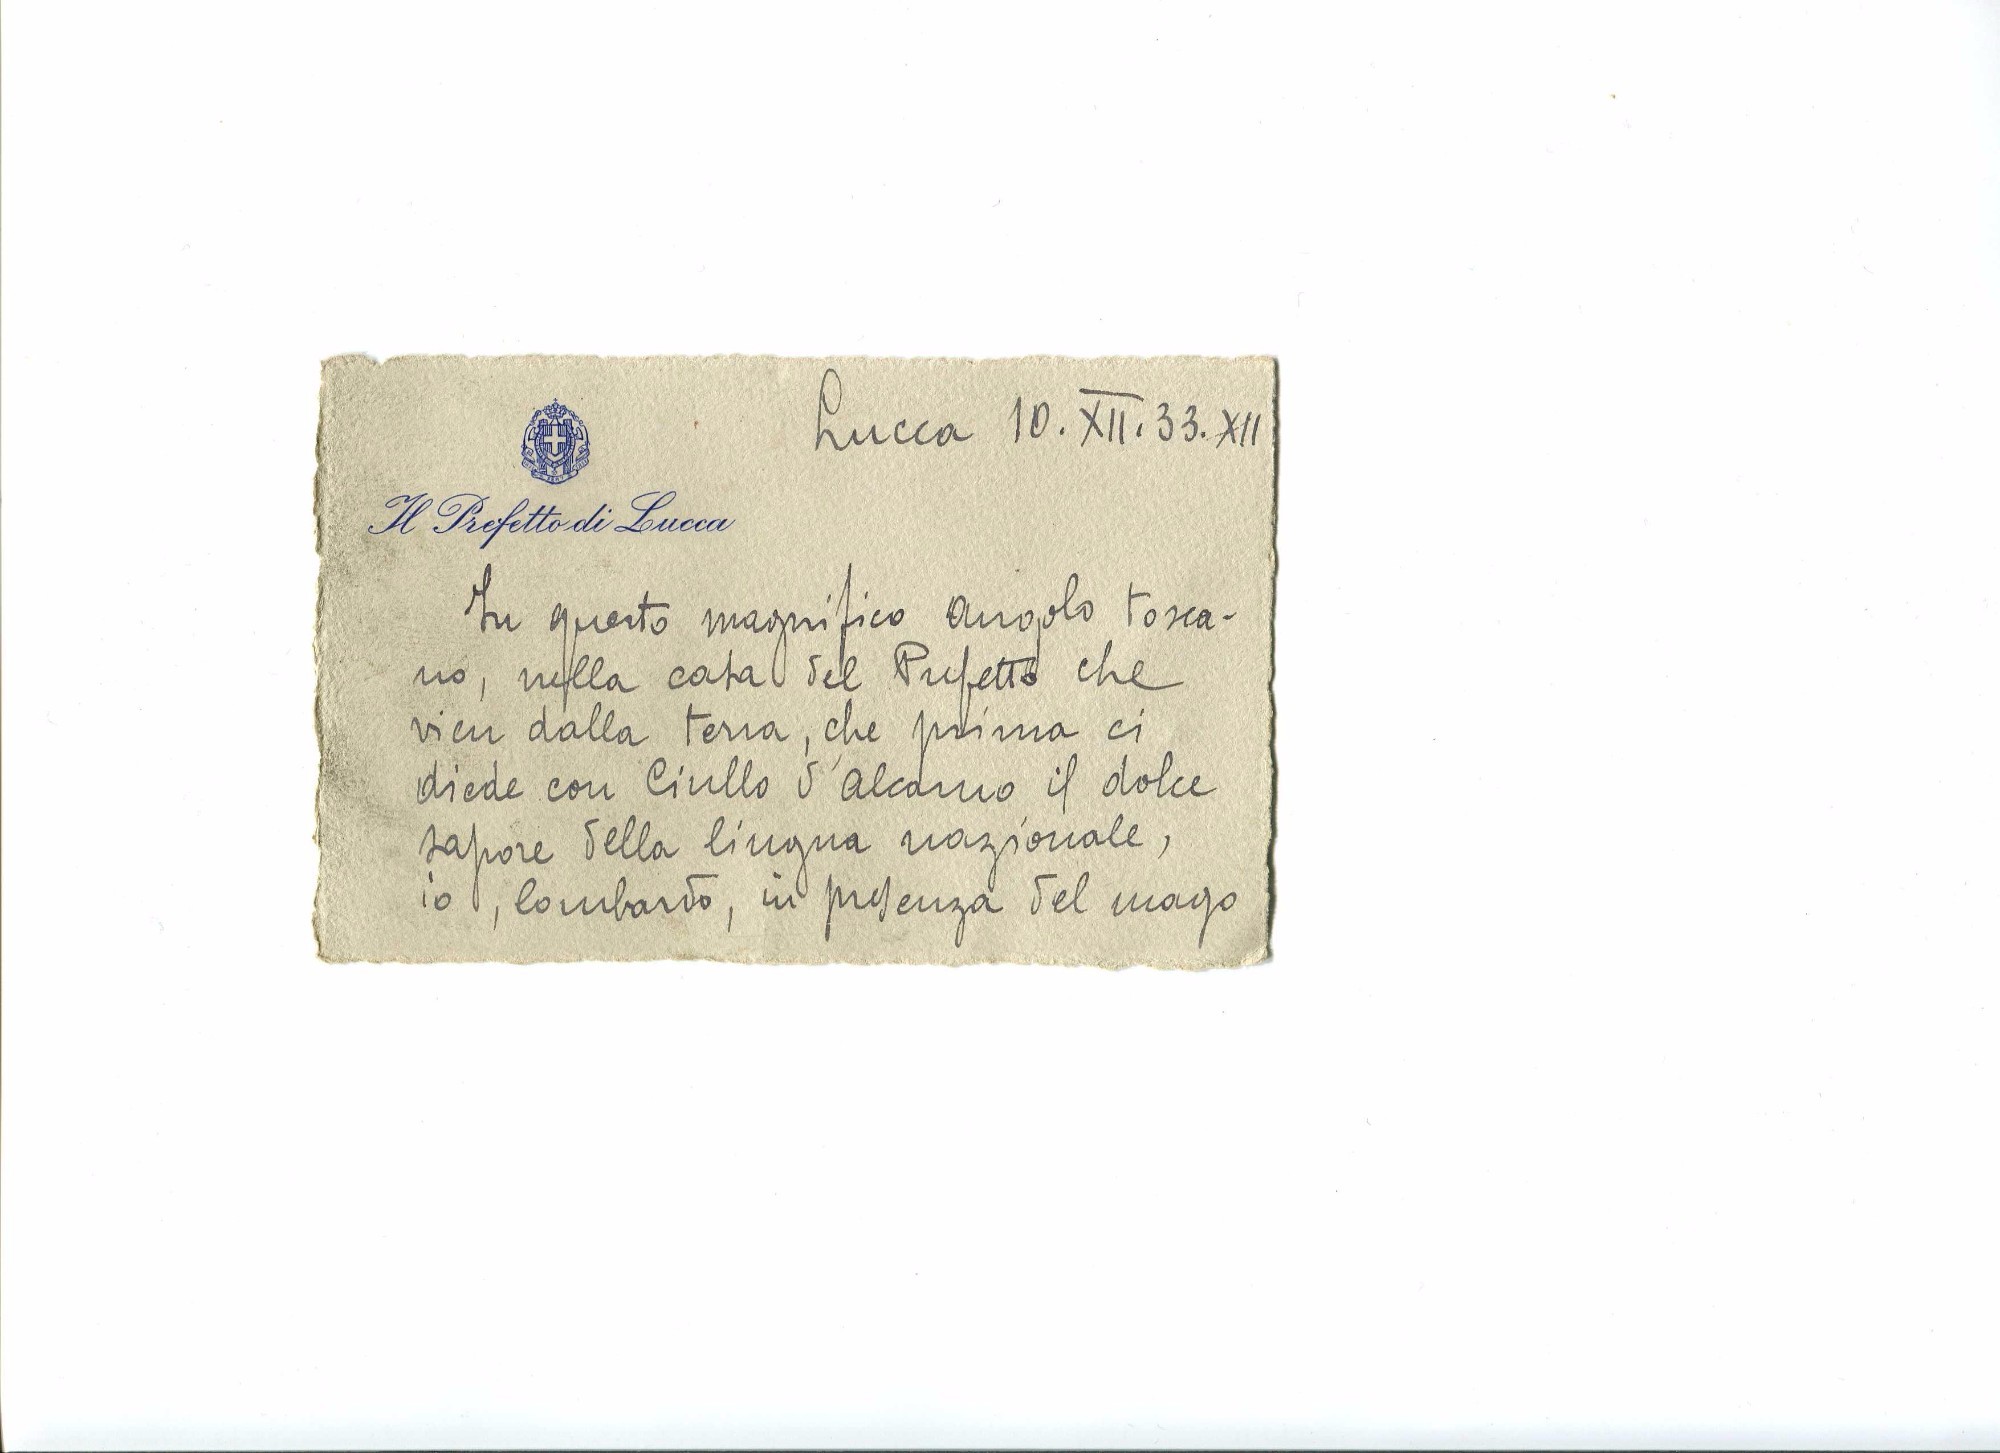 Lucca 10.XII.33.XII
Il Prefetto di Lucca
In questo magnifico angolo tosca-
no, nella casa del Prefetto che
vien dalla terra, che prima ci
diede con Ciullo d'Alcamo il dolce
sapore della lingua nazionale,
io, lombardo, in presenza del mago